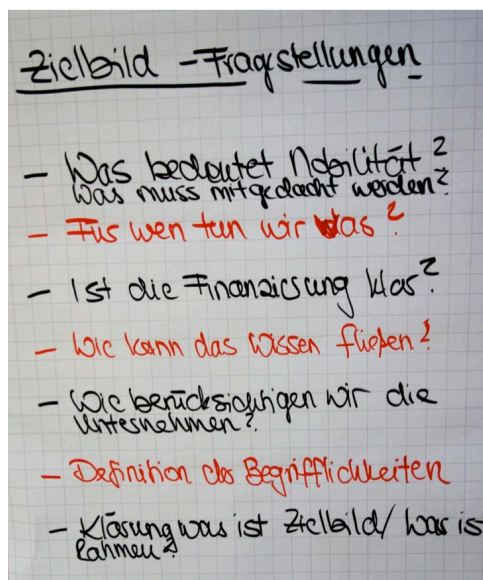 Zielbild - Fragestellungen
- Was bedeutet Mobilität?
Was muss mitgedacht werden?
- Für wen tun wir das?
- Ist die Finanzierung klar?
- Wie kann das Wissen fließen?
- Wie berücksichtigen wir die
Unternehmen?
- Definition der Begrifflichkeiten
- Klärung was ist Zielbild/ was is
Rahmen?